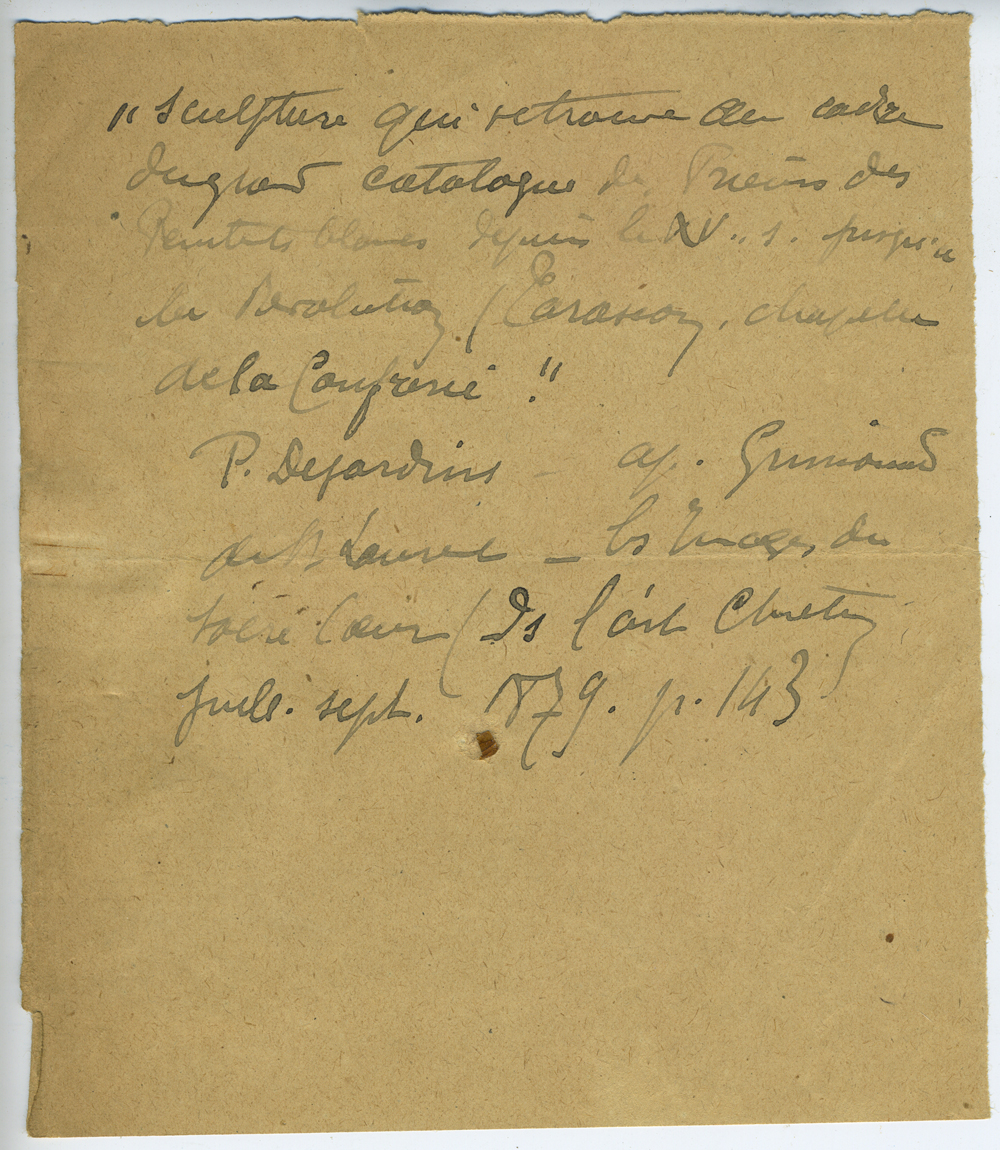 "sculpture qui retrouve au cadre
du grand catalogue des Prieurs des
Penitents blancs depuis le XV. s. jusqu'à
la Revolution (Tarascon, chapelle
de la Confrerie."
P. Desjardins - ap. Grimouard
de St Laurent - les Images du
Sacré Cœur (Ds l'art Chretien
juill. sept. 1879. p. 143)